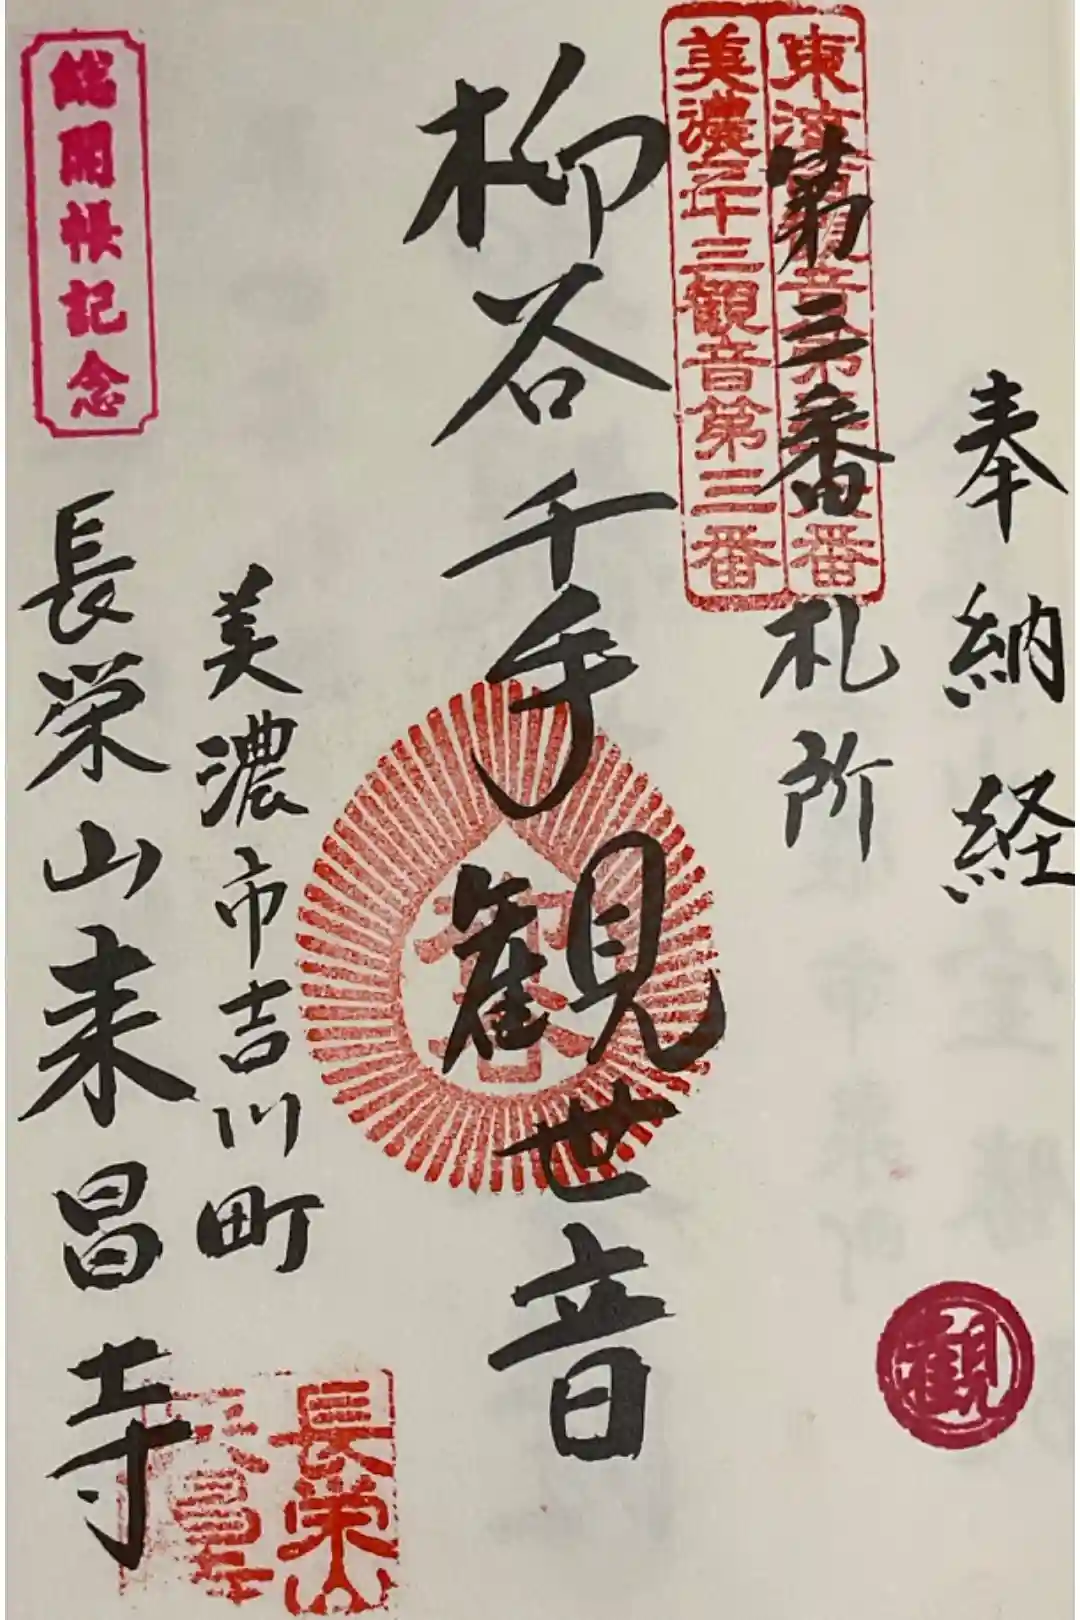 奉納経
第三番札所
美濃三十三観音第三番
柳谷千手観世音
美濃市吉川町
長栄山来昌寺
総開帳記念
観
長栄山
来昌寺